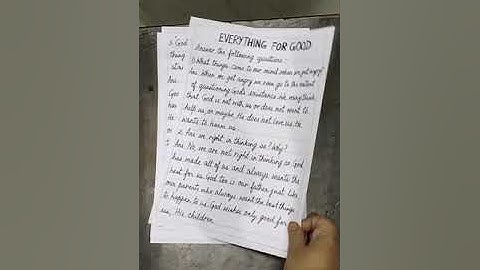 EVERYTHING FOR GOOD
Answer the following questions:-
1) What things come to our mind when we get angry?
Ans. When we get angry we even go to the extent
of questioning God's existence. We may think
that God is not with us or does not want to
help us or maybe He does not love us. He
wants to harm us.
2. Are we right in thinking so? Why?
Ans. No, we are not right in thinking so. God
has made all of us and always wants the
best for us. God too is our father just like
our parents who always want the best things
to happen to us. God wishes only good for
us, His children.
"God
thing